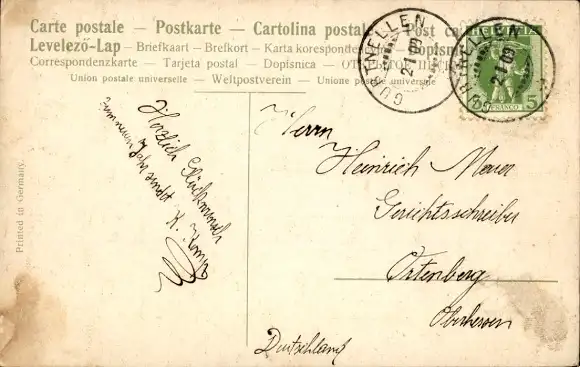 Carte postale — Postkarte — Cartolina postale — Post
Levelező-Lap — Briefkaart — Brefkort — Karta korespondencyjna
Correspondenzkarte — Tarjeta postal — Dopisnica —
Union postale universelle — Weltpostverein — Unione postale universale
HELVETIA
FRANCO 5
2 I 09
2 I 09
Printed in Germany.
Herzlich Glückwunsch
zum neuen Jahr sendet
K.
Herrn
Heinrich Meuer
Gerichtsschreiber
Ortenberg
Oberhessen
Deutschland